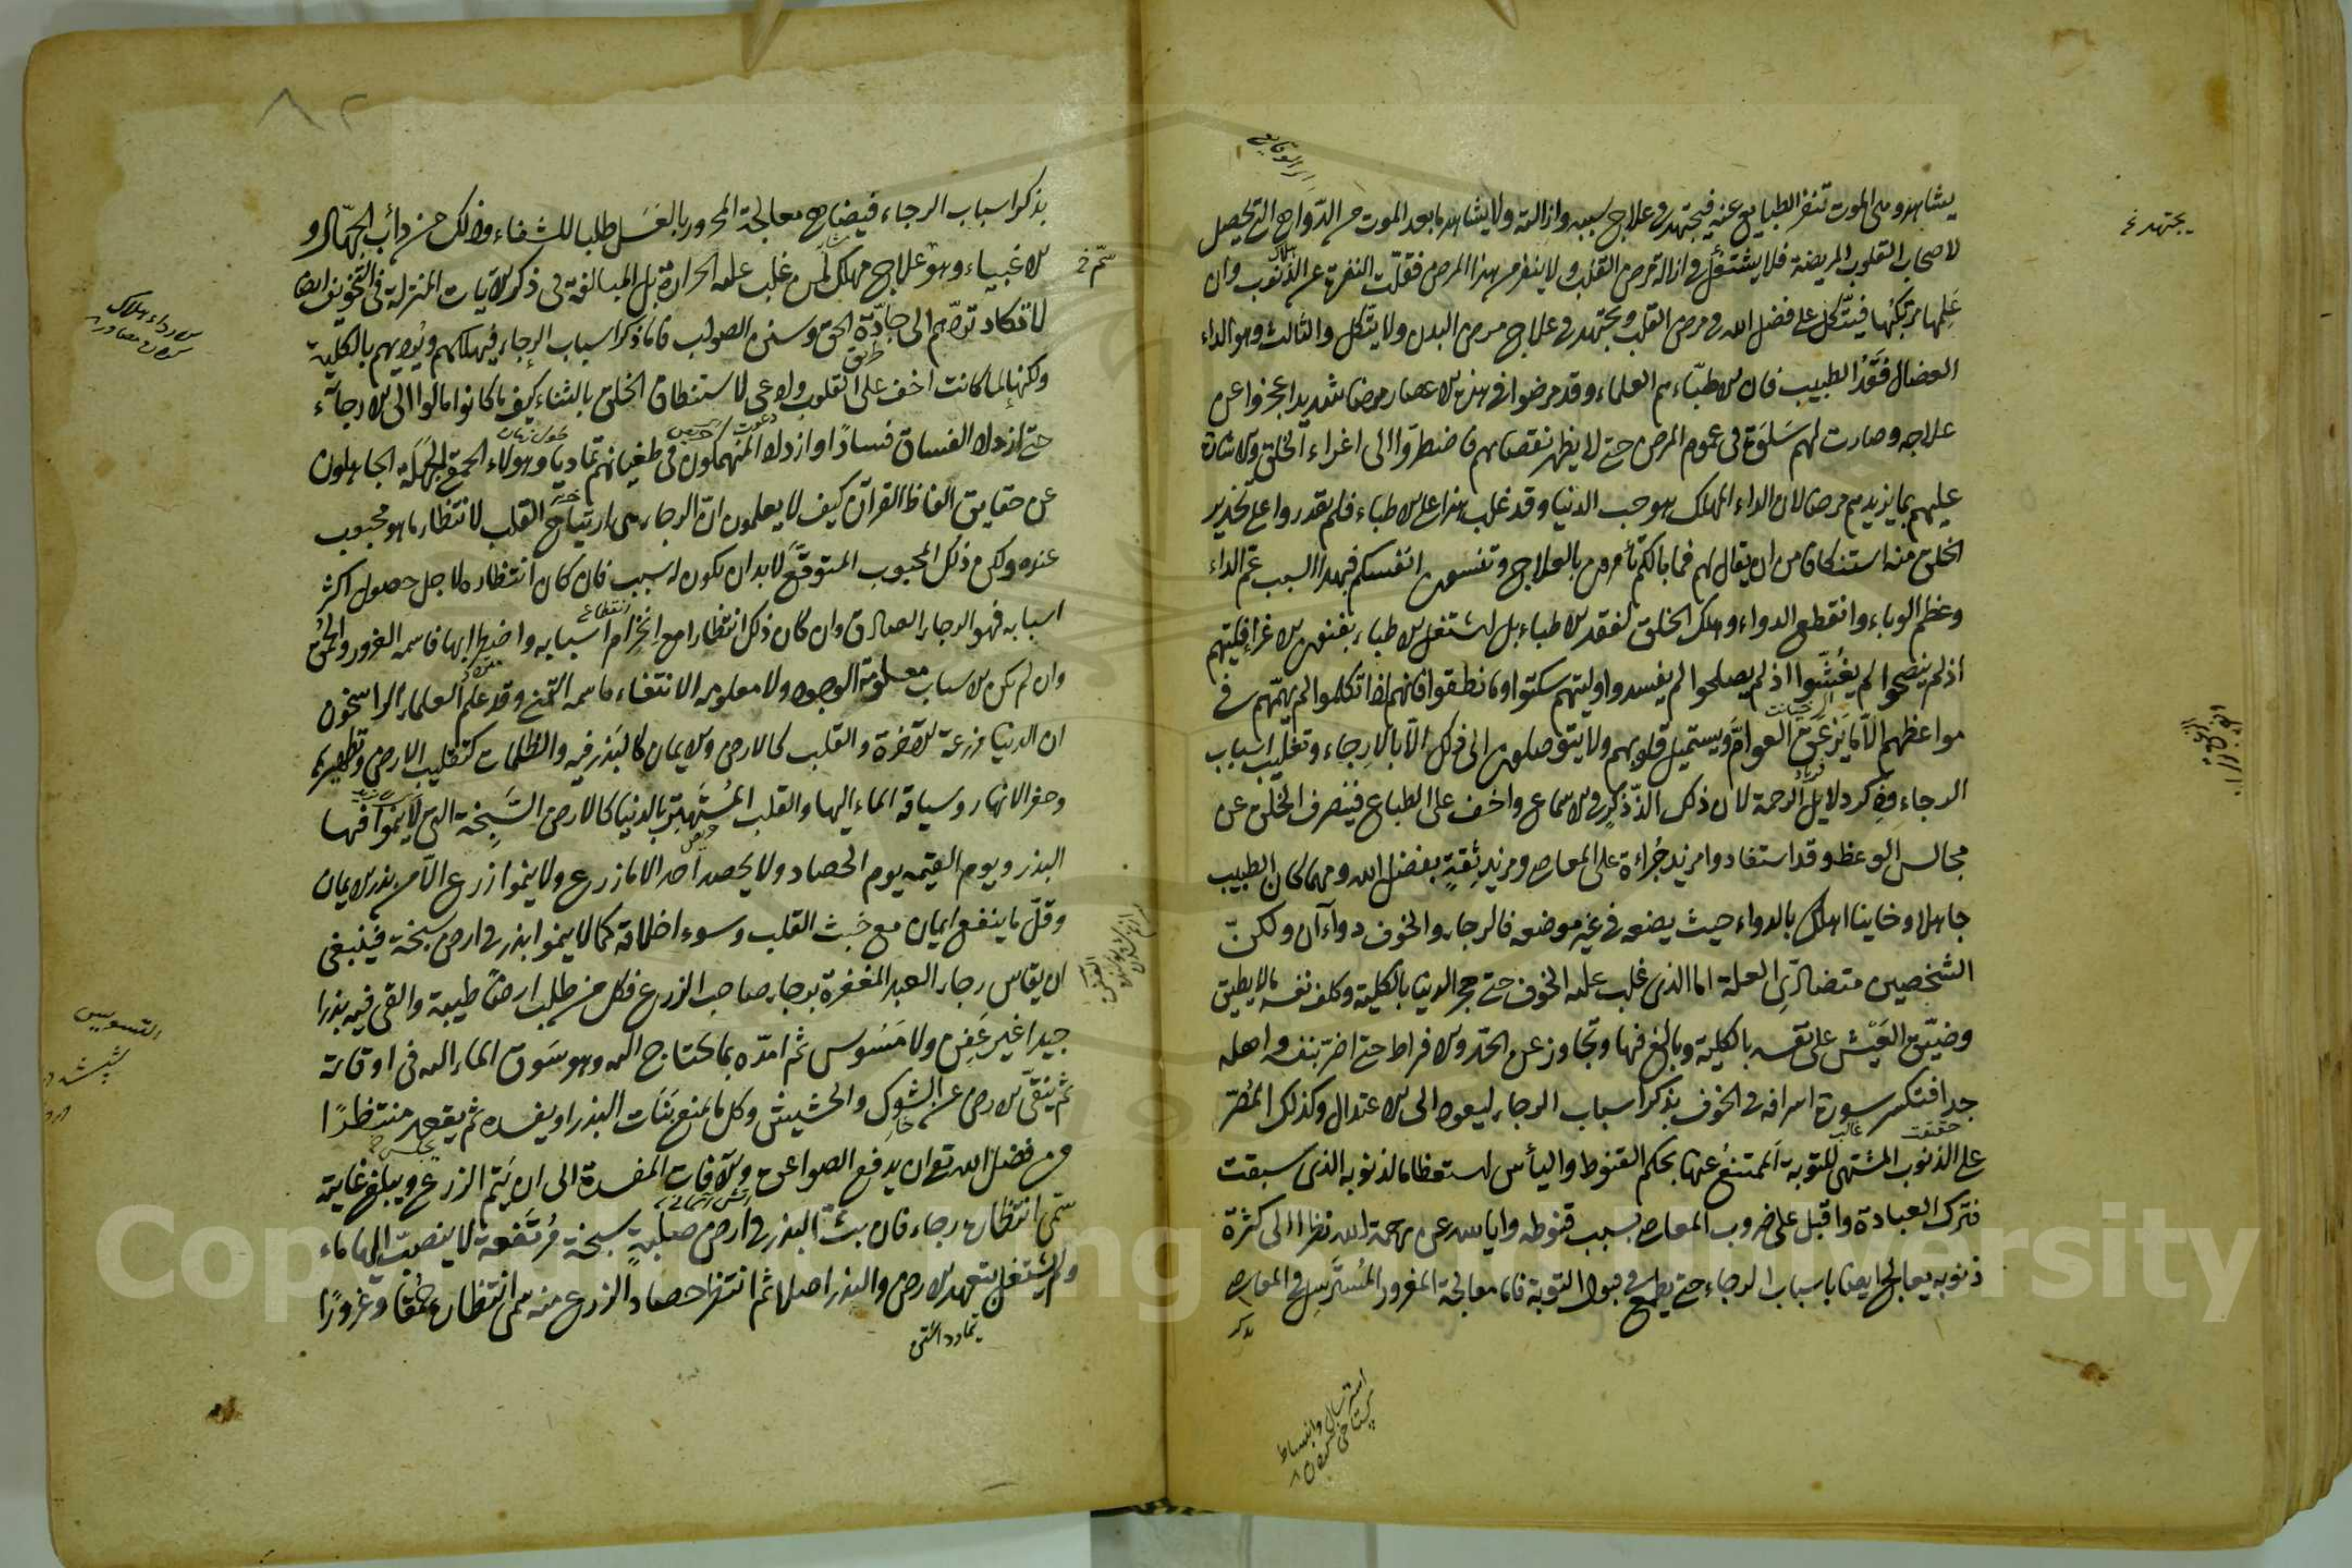 يشاهد وهي الموت تنفر الطبايع عنه فيجتهد في علاج سببه وازالته ولا يشاهد ما بعد الموت من الدواهي التي تحصل
لاصحاب القلوب المريضة فلا يشتغل في ازالة مرض القلب ولا ينفر من هذا المرض فقلت النفرة عن الذنوب وان
علمها مرتكبها فيتكل على فضل الله في مرض القلب ويجتهد في علاج مرض البدن ولا يتكل والثالث وهو الداء
العضال فقد الطبيب فان الاطباء هم العلماء وقد مرضوا في هذه الاعصار مرضا شديدا عجزوا عن
علاجه وصارت لهم سلوة في عموم المرض حتى لا يظهر نقصانهم فاضطروا الى اغراء الخلق والاشارة
عليهم بما يزيدهم مرضا لان الداء المهلك هو حب الدنيا وقد غلب هذا على الاطباء فلم يقدروا على تحذير
الخلق منه استنكافا من ان يقال لهم فما بالكم تأمرون بالعلاج وتنسون انفسكم فبهذا السبب عم الداء
وعظم الوباء وانقطع الدواء وهلك الخلق لفقد الاطباء بل اشتغل الاطباء بفنون الاغراء فليتهم
اذ لم ينصحوا لم يغشوا اذ لم يصلحوا لم يفسدوا وليتهم سكتوا وما نطقوا فانهم اذا تكلموا لم يهمهم في
مواعظهم الا ما يزعق العوام ويستميل قلوبهم ولا يتوصلون الى ذلك الا بالارجاء وتغليب اسباب
الرجاء وذكر دلايل الرحمة لان ذلك الذ في الاسماع واخف على الطباع فينصرف الخلق عن
مجالس الوعظ وقد استفادوا مزيد جراءة على المعاصي ومزيد ثقة بفضل الله ومهما كان الطبيب
جاهلا وخاينا اهلك بالدواء حيث يضعه في غير موضعه فالرجاء والخوف دواءان ولكن
الشخصين متضادي العلة اما الذي غلب عليه الخوف حتى هجر الدنيا بالكلية وكلف نفسه ما لا يطيق
وضيق العيش على نفسه بالكلية وبالغ فيها وتجاوز عن الحد والافراط حتى اضر بنفسه واهله
جدا فتكسر سورة اسرافه في الخوف بذكر اسباب الرجاء ليعود الى الاعتدال وكذلك المصر
على الذنوب المشتهي للتوبة الممتنع عنها بحكم القنوط واليأس استعظاما لذنوبه الذي سبقت
فترك العبادة واقبل على ضروب المعاصي بسبب قنوطه واياسه عن رحمة الله نظرا الى كثرة
ذنوبه يعالج ايضا باسباب الرجاء حتى يطمع في قبول التوبة فاما معالجة المغرور المسترسل في المعاصي
بذكر
استرسال وانبساط
بذكر اسباب الرجاء فيضاهي معالجة المحرور بالعسل طلبا للشفاء وذلك من دأب الجهال و
الاغبياء وهو علاج مهلك لمن غلب عليه الحرارة بل المبالغة في ذكر الآيات المنزلة في التخويف ايضا
لا تكاد تردهم الى جادة الحق وسنن الصواب فاما ذكر اسباب الرجاء فيهلكهم ويرديهم بالكلية
ولكنها لما كانت اخف على القلوب وادعى لاستنطاق الخلق بالثناء كيف ما كانوا مالوا الى الارجاء
حتى ازداد الفساق فسادا وازداد المنهمكون في طغيانهم تماديا وهولاء الحمقى الجهلة الجاهلون
عن حقايق الفاظ القرآن كيف لا يعلمون ان الرجاء هي ارتياح القلب لانتظار ما هو محبوب
عنده ولكن ذلك المحبوب المتوقع لا بد ان يكون له سبب فان كان انتظاره لاجل حصول اكثر
اسبابه فهو الرجاء الصادق وان كان ذلك انتظارا مع انخرام اسبابه واضطرابها فاسمه الغرور والحمق
وان لم يكن الاسباب معلومة الوجود ولا معلومة الانتفاء فاسمه التمني وقد علم العلماء الراسخون
ان الدنيا مزرعة الآخرة والقلب كالارض والايمان كالبذر فيه والطاعات كتقليب الارض وتطهيرها
وحفر الانهار وسياقة الماء اليها والقلب المستهتر بالدنيا كالارض السبخة التي لا ينموا فيها
البذر ويوم القيمة يوم الحصاد ولا يحصد احد الا ما زرع ولا ينموا زرع الا من بذر الايمان
وقل ما ينفع ايمان مع خبث القلب وسوء اخلاقه كما لا ينموا بذر في ارض سبخة فينبغي
ان يقاس رجاء العبد المغفرة برجاء صاحب الزرع فكل من طلب ارضا طيبة والقى فيه بذرا
جيدا غير عفن ولا مسوس ثم امده بما يحتاج اليه وهو سوق الماء اليه في اوقاته
ثم ينقي الارض عن الشوك والحشيش وكل ما يمنع نبات البذر او يفسده ثم يقعد منتظرا
من فضل الله تع ان يدفع الصواعق والآفات المفسدة الى ان يتم الزرع ويبلغ غايته
سمى انتظاره رجاء فان بث البذر في ارض صلبة سبخة مرتفعة لا ينصب اليها ماء
ولم يشتغل بتعهد الارض والبذر اصلا ثم انتظر حصاد الزرع منه سمى انتظاره حمقا وغرورا